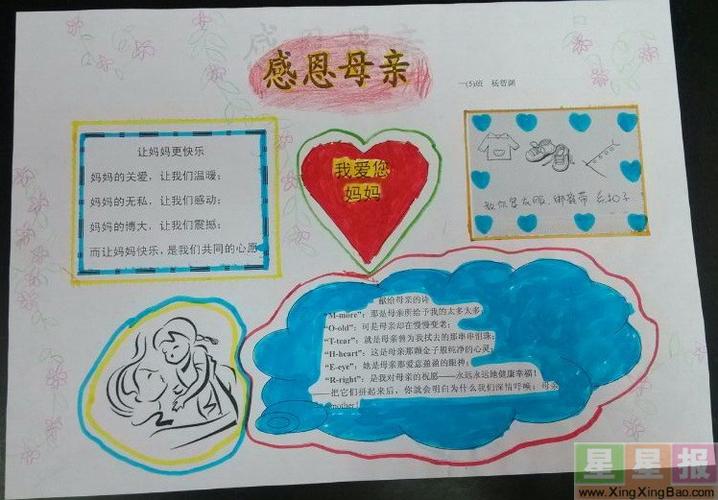 感恩母亲
一(5)班 杨哲渊
让妈妈更快乐
妈妈的关爱，让我们温暖；
妈妈的无私，让我们感动；
妈妈的博大，让我们震撼；
而让妈妈快乐，是我们共同的心愿
我爱您
妈妈
教你穿衣服、绑鞋带 系扣子
献给母亲的诗
"M-more"：那是母亲所给予我的太多太多
"O-old"：可是母亲却在慢慢变老；
"T-tear"：就是母亲曾为我拭去的那串串泪珠；
"H-heart"：这是母亲那颗金子般纯净的心灵；
"E-eye"：她是母亲那爱意盈盈的眼神；
"R-right"：是我对母亲的祝愿——永远永远地健康幸福！
——把它们拼起来后，你就会明白为什么我们深情呼唤：母亲
mother！
星星报
www.XingXingBao.com